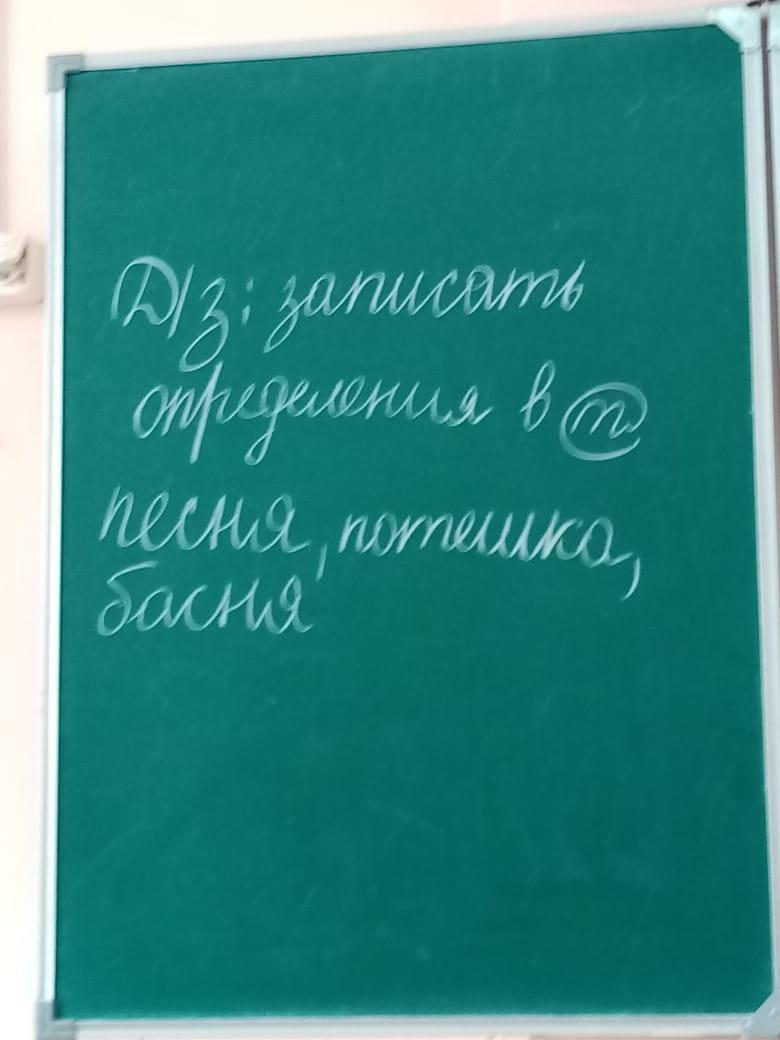 Д/з: записать
определения в т.
песня, потешка,
басня